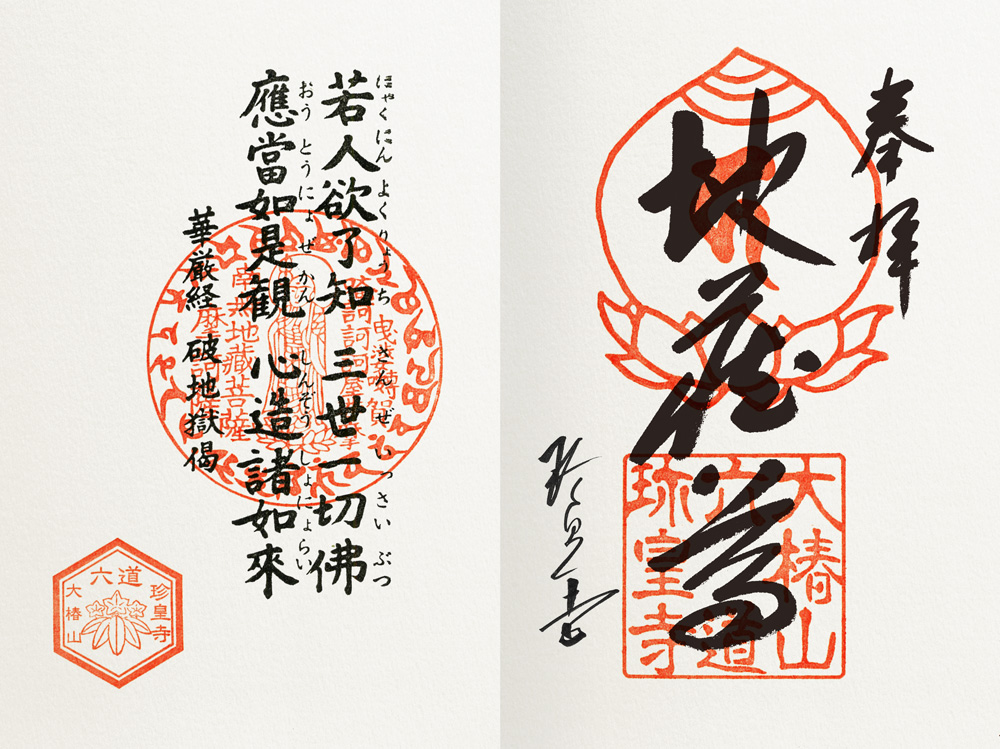 奉拝
地蔵尊
大椿山
六道
珍皇寺
にゃくにん よくりょうち さんぜ いっさい ぶつ
若人欲了知 三世一切佛
おうとうにょ ぜかん しんぞう しょにょらい
應當如是観 心造諸如來
華厳経 破地獄偈
南無地藏菩薩
六道
珍皇寺
大椿山